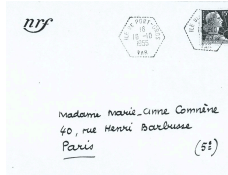 nrf
ILE DE PORT-CROS
18
10-10
1955
VAR
Madame Marie-Anne Comnène
40, rue Henri Barbusse
Paris (5e)